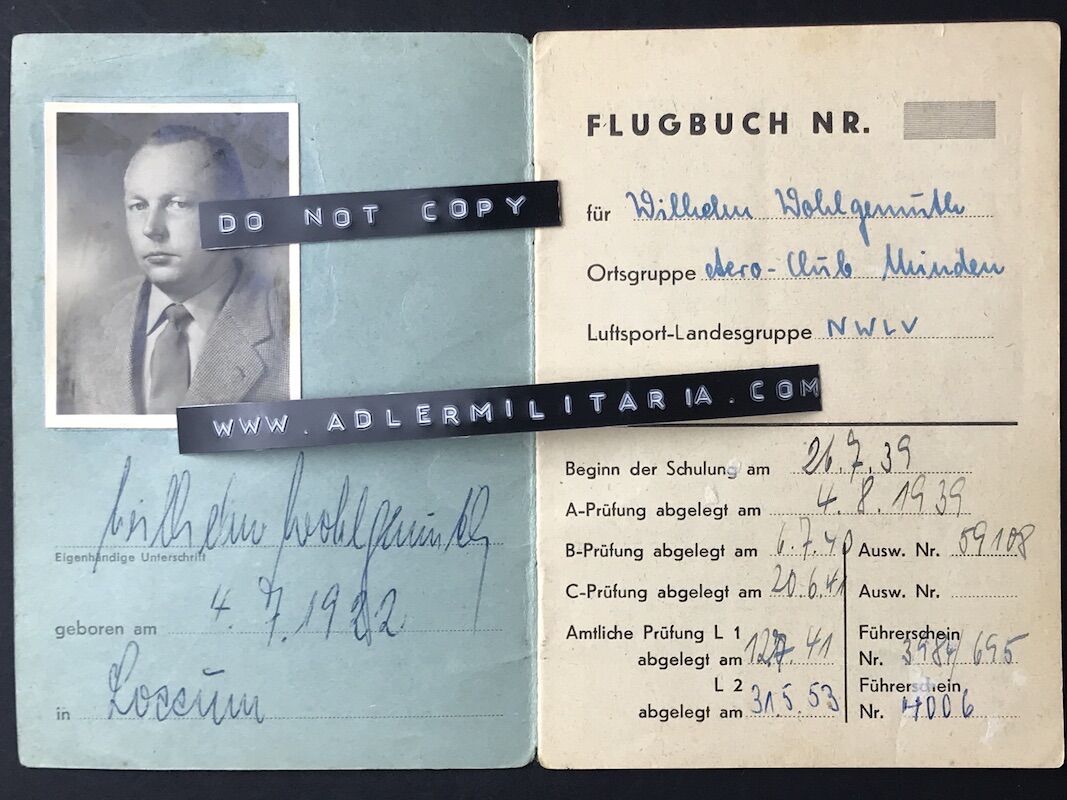 DO NOT COPY
WWW.ADLERMILITARIA.COM
Wilhelm Wohlgemuth
Eigenhändige Unterschrift
geboren am 4.7.1922
in Loccum
FLUGBUCH NR.
für Wilhelm Wohlgemuth
Ortsgruppe Aero-Club Minden
Luftsport-Landesgruppe NWLV
Beginn der Schulung am 26.7.39
A-Prüfung abgelegt am 4.8.1939
B-Prüfung abgelegt am 6.7.40 Ausw. Nr. 59108
C-Prüfung abgelegt am 20.6.41 Ausw. Nr.
Amtliche Prüfung L 1 Führerschein
abgelegt am 12.7.41 Nr. 3984/695
L 2 Führerschein
abgelegt am 31.5.53 Nr. 4006